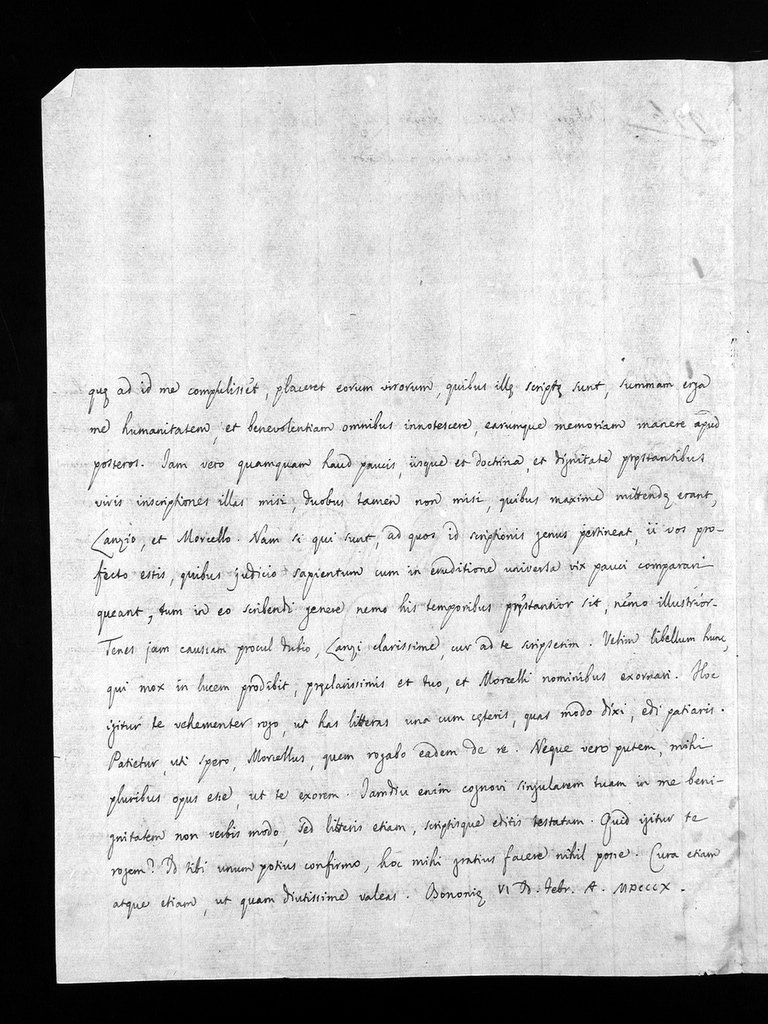 quę ad id me compulisset, placeret eorum virorum, quibus illę scriptę sunt, summam erga
me humanitatem, et benevolentiam omnibus innotescere, earumque memoriam manere apud
posteros. Iam vero quamquam haud paucis, iisque et doctrina, et dignitate pręstantibus
viris inscriptiones illas misi, duobus tamen non misi, quibus maxime mittendę erant,
Lanzio, et Morcello. Nam si qui sunt, ad quos id scriptionis genus pertineat, ii vos pro-
fecto estis, quibus judicio sapientum cum in eruditione universa vix pauci comparari
queant, tum in eo scribendi genere nemo his temporibus pręstantior sit, nemo illustrior.
Tenes jam caussam procul dubio, Lanzi clarissime, cur ad te scripserim. Velim libellum hunc,
qui mox in lucem prodibit, pręclarissimis et tuo, et Morcelli nominibus exornari. Hoc
igitur te vehementer rogo, ut has litteras una cum cęteris, quas modo dixi, edi patiaris.
Patietur, uti spero, Morcellus, quem rogabo eadem de re. Neque vero putem, mihi
pluribus opus esse, ut te exorem. Iamdiu enim cognovi singularem tuam in me beni-
gnitatem non verbis modo, sed litteris etiam, scriptisque editis testatam. Quid igitur te
rogem? Id tibi unum potius confirmo, hoc mihi gratius facere nihil posse. Cura etiam
atque etiam, ut quam diutissime valeas. Bononię VI Id. Febr. A. MDCCCX.